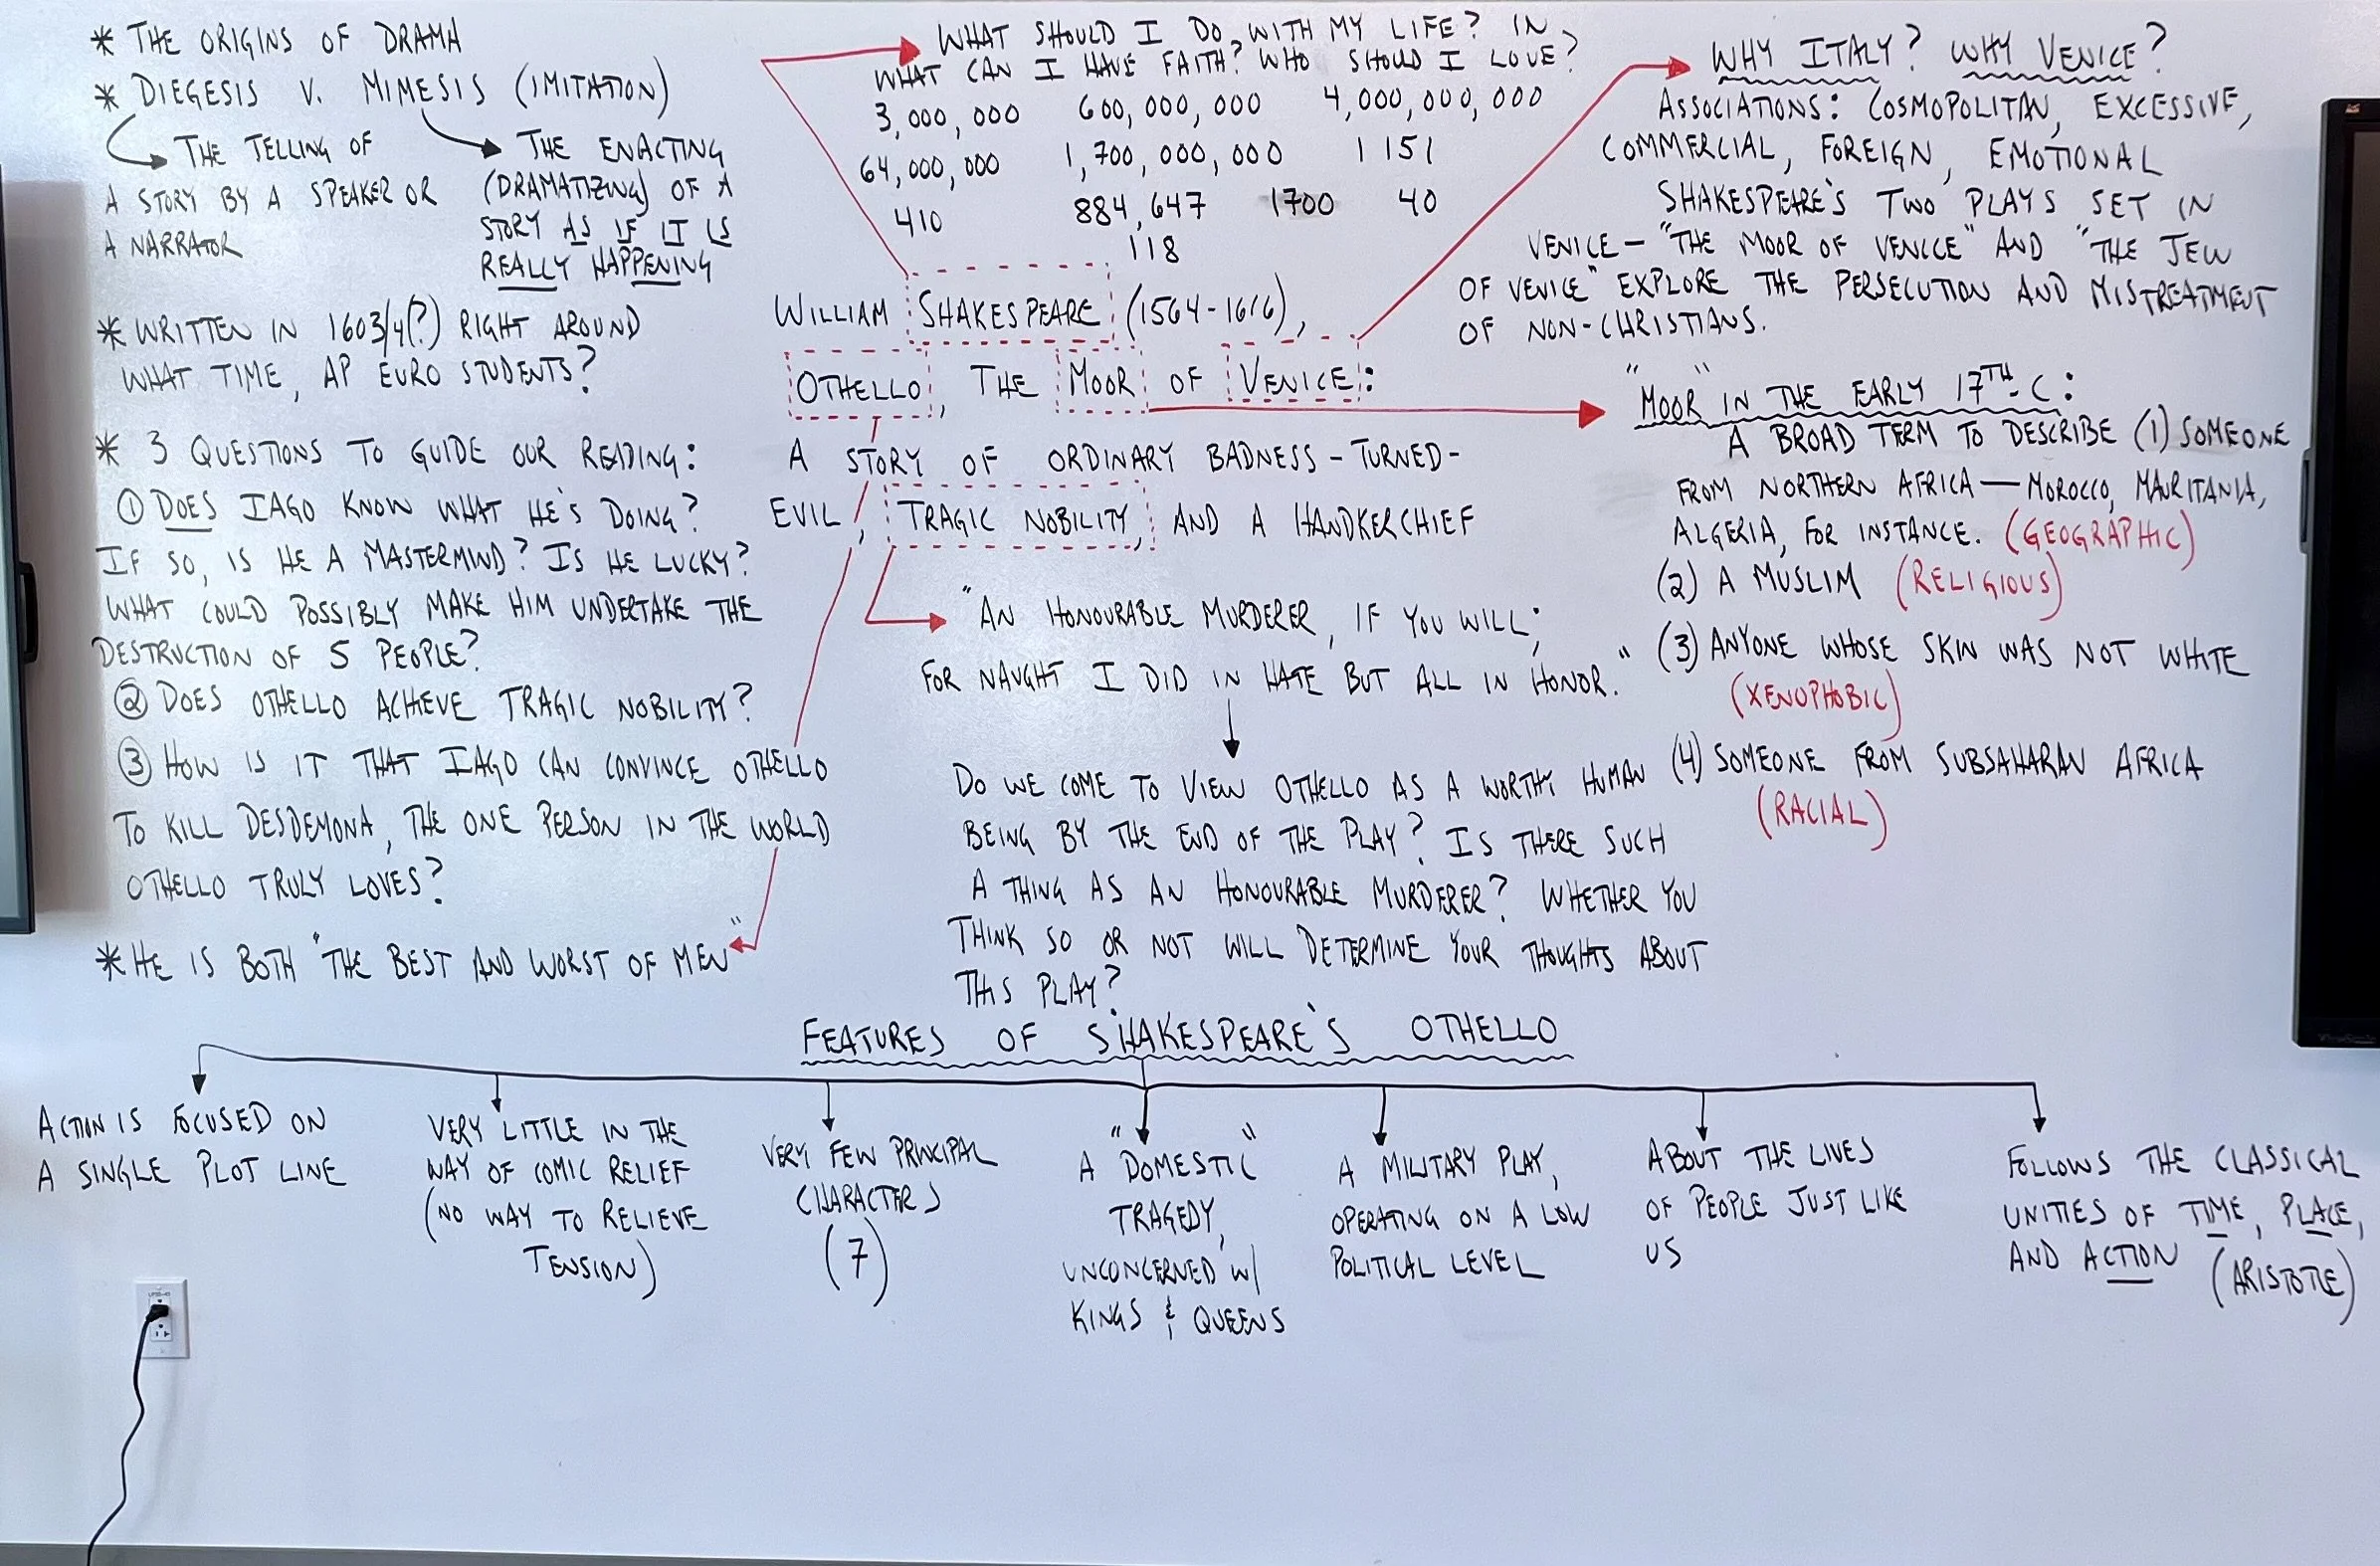 * THE ORIGINS OF DRAMA
* DIEGESIS V. MIMESIS (IMITATION)
THE TELLING OF
A STORY BY A SPEAKER OR
A NARRATOR
THE ENACTING
(DRAMATIZING) OF A
STORY AS IF IT IS
REALLY HAPPENING
* WRITTEN IN 1603/4(?) RIGHT AROUND
WHAT TIME, AP EURO STUDENTS?
* 3 QUESTIONS TO GUIDE OUR READING:
① DOES IAGO KNOW WHAT HE'S DOING?
IF SO, IS HE A MASTERMIND? IS HE LUCKY?
WHAT COULD POSSIBLY MAKE HIM UNDERTAKE THE
DESTRUCTION OF 5 PEOPLE?
② DOES OTHELLO ACHIEVE TRAGIC NOBILITY?
③ HOW IS IT THAT IAGO CAN CONVINCE OTHELLO
TO KILL DESDEMONA, THE ONE PERSON IN THE WORLD
OTHELLO TRULY LOVES?
* HE IS BOTH "THE BEST AND WORST OF MEN"
WHAT SHOULD I DO WITH MY LIFE? IN
WHAT CAN I HAVE FAITH? WHO SHOULD I LOVE?
3,000,000 600,000,000 4,000,000,000
64,000,000 1,700,000,000 1 151
410 884,647 1700 40
118
WILLIAM SHAKESPEARE (1564-1616),
OTHELLO, THE MOOR OF VENICE:
A STORY OF ORDINARY BADNESS-TURNED-
EVIL, TRAGIC NOBILITY, AND A HANDKERCHIEF
"AN HONOURABLE MURDERER, IF YOU WILL;
FOR NAUGHT I DID IN HATE BUT ALL IN HONOR."
DO WE COME TO VIEW OTHELLO AS A WORTHY HUMAN
BEING BY THE END OF THE PLAY? IS THERE SUCH
A THING AS AN HONOURABLE MURDERER? WHETHER YOU
THINK SO OR NOT WILL DETERMINE YOUR THOUGHTS ABOUT
THIS PLAY?
WHY ITALY? WHY VENICE?
ASSOCIATIONS: COSMOPOLITAN, EXCESSIVE,
COMMERCIAL, FOREIGN, EMOTIONAL
SHAKESPEARE'S TWO PLAYS SET IN
VENICE — "THE MOOR OF VENICE" AND "THE JEW
OF VENICE" EXPLORE THE PERSECUTION AND MISTREATMENT
OF NON-CHRISTIANS.
"MOOR" IN THE EARLY 17TH C:
A BROAD TERM TO DESCRIBE (1) SOMEONE
FROM NORTHERN AFRICA — MOROCCO, MAURITANIA,
ALGERIA, FOR INSTANCE. (GEOGRAPHIC)
(2) A MUSLIM (RELIGIOUS)
(3) ANYONE WHOSE SKIN WAS NOT WHITE
(XENOPHOBIC)
(4) SOMEONE FROM SUBSAHARAN AFRICA
(RACIAL)
FEATURES OF SHAKESPEARE'S OTHELLO
ACTION IS FOCUSED ON
A SINGLE PLOT LINE
VERY LITTLE IN THE
WAY OF COMIC RELIEF
(NO WAY TO RELIEVE
TENSION)
VERY FEW PRINCIPAL
CHARACTERS
(7)
A "DOMESTIC"
TRAGEDY,
UNCONCERNED W/
KINGS & QUEENS
A MILITARY PLAY,
OPERATING ON A LOW
POLITICAL LEVEL
ABOUT THE LIVES
OF PEOPLE JUST LIKE
US
FOLLOWS THE CLASSICAL
UNITIES OF TIME, PLACE,
AND ACTION (ARISTOTLE)